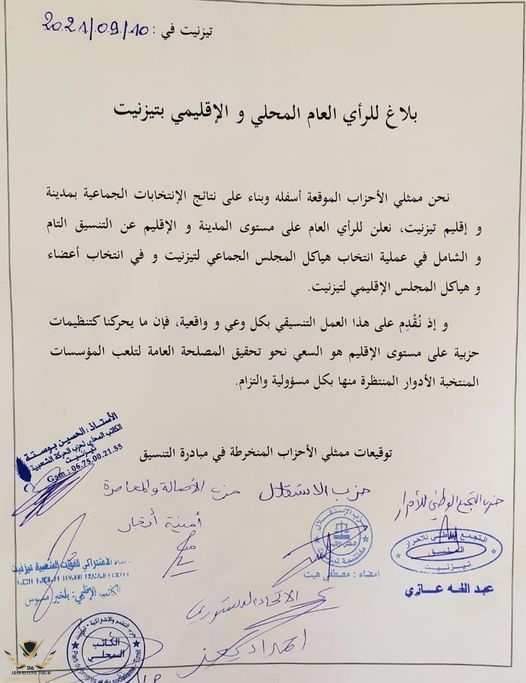 تيزنيت في : 2021/09/10
بلاغ للرأي العام المحلي و الإقليمي بتيزنيت
نحن ممثلي الأحزاب الموقعة أسفله وبناء على نتائج الإنتخابات الجماعية بمدينة
و إقليم تيزنيت، نعلن للرأي العام على مستوى المدينة و الإقليم عن التنسيق التام
و الشامل في عملية انتخاب هياكل المجلس الجماعي لتيزنيت و في انتخاب أعضاء
و هياكل المجلس الإقليمي لتيزنيت.
و إذ نُقْدِم على هذا العمل التنسيقي بكل وعي و واقعية، فإن ما يحركنا كتنظيمات
حزبية على مستوى الإقليم هو السعي نحو تحقيق المصلحة العامة لتلعب المؤسسات
المنتخبة الأدوار المنتظرة منها بكل مسؤولية والتزام.
توقيعات ممثلي الأحزاب المنخرطة في مبادرة التنسيق
الأستاذ : الحسين بوستة
الكاتب المحلي لحزب الحركة الشعبية
تيزنيت
Gsm : 06.75.00.21.55
حزب التجمع الوطني للأحرار
حزب الاستقلال
حزب الأصالة والمعاصرة
أمينة
التجمع الوطني للأحرار
المنسق
تيزنيت
عبد الله غازي
حزب الإستقلال
إمضاء : مصطفى
الاشتراكي للقوات الشعبية تيزنيت
الكاتب الإقليمي:
الاتحاد الدستوري
حزب التقدم والاشتراكية
الكاتب
المحلي